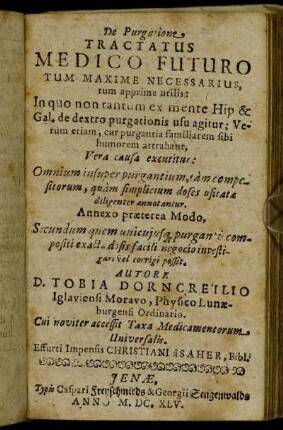 De Purgatione
TRACTATUS
MEDICO FUTURO
TUM MAXIME NECESSARIUS,
tum apprime utilis:
In quo non tantum ex mente Hip &
Gal. de dextro purgationis usu agitur: Ve-
rùm etiam, cur purgantia familiarem sibi
humorem attrahant,
Vera causa excutitur:
Omnium insuper purgantium, tàm compo-
sitorum, quàm simplicium doses usitatæ
diligenter annotantur.
Annexo præterea Modo,
Secundum quem uniuscujusq; purgantis com-
positi exacta dosis facili negocio investi-
gari vel corrigi possit.
AUTORE
D. TOBIA DORNCREILIO
Iglaviensi Moravo, Physico Lunæ-
burgensi Ordinario.
Cui noviter accessit Taxa Medicamentorum
Universalis.
Effurti Impensis CHRISTIANI à SAHER, Bibl.
JENÆ,
Typis Caspari Freyschmieds & Georgii Sengenwalds
ANNO M. DC. XLV.